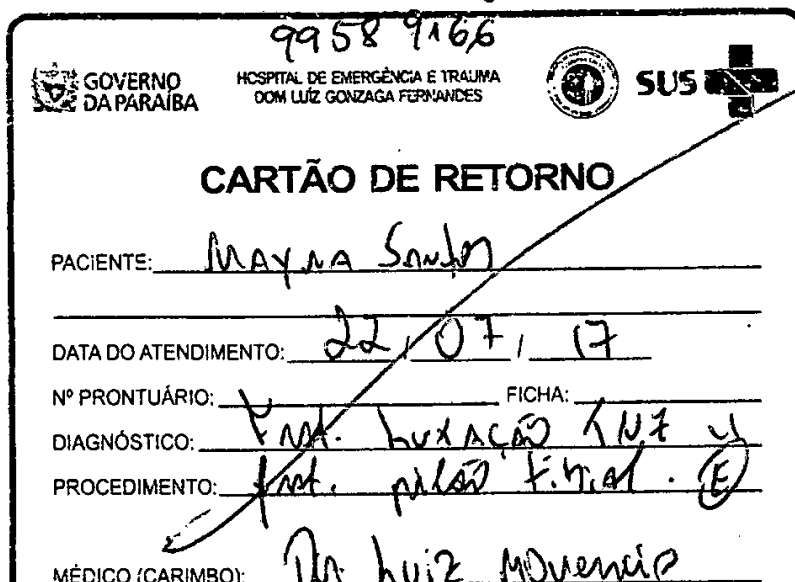 9958 9166
GOVERNO DA PARAÍBA
HOSPITAL DE EMERGÊNCIA E TRAUMA
DOM LUÍZ GONZAGA FERNANDES
SUS
CARTÃO DE RETORNO
PACIENTE: MAYNA Santos
DATA DO ATENDIMENTO: 22, 07, 17
Nº PRONTUÁRIO: FICHA:
DIAGNÓSTICO: Frat. Luxação
PROCEDIMENTO: Frat. pilão tibial. (E)
MÉDICO (CARIMBO): Dr. Luiz